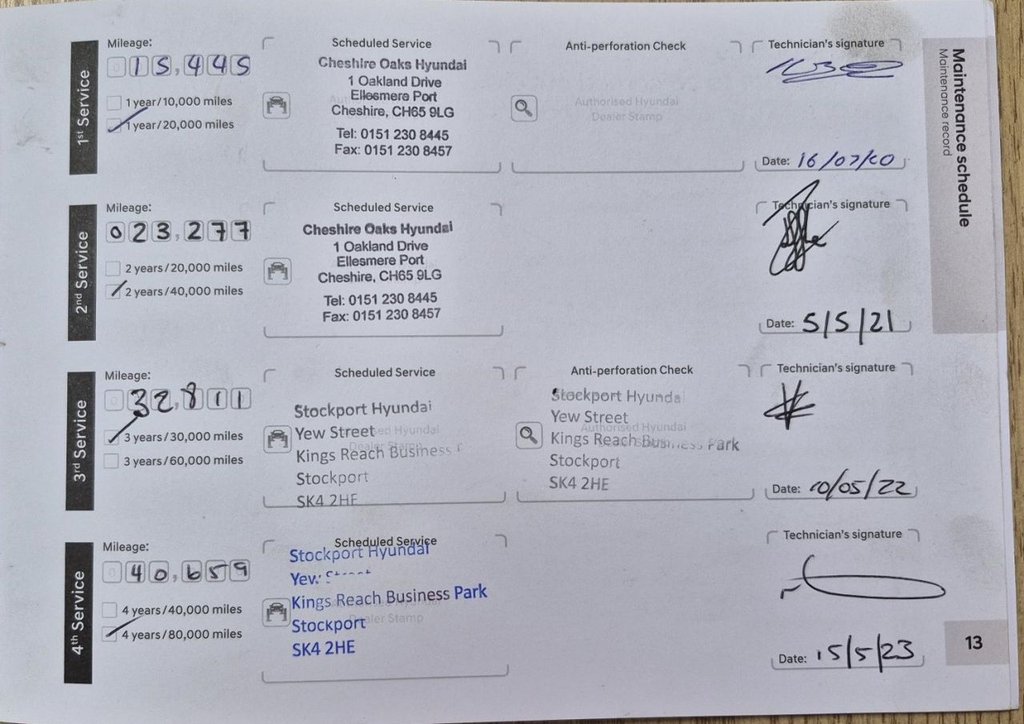 Maintenance schedule
Maintenance record
1st Service
Mileage:
015,445
1 year/10,000 miles
1 year/20,000 miles
Scheduled Service
Cheshire Oaks Hyundai
1 Oakland Drive
Ellesmere Port
Cheshire, CH65 9LG
Tel: 0151 230 8445
Fax: 0151 230 8457
Anti-perforation Check
Authorised Hyundai
Dealer Stamp
Technician's signature
Date: 16/07/20
2nd Service
Mileage:
023,277
2 years/20,000 miles
2 years/40,000 miles
Scheduled Service
Cheshire Oaks Hyundai
1 Oakland Drive
Ellesmere Port
Cheshire, CH65 9LG
Tel: 0151 230 8445
Fax: 0151 230 8457
Technician's signature
Date: 5/5/21
3rd Service
Mileage:
032,811
3 years/30,000 miles
3 years/60,000 miles
Scheduled Service
Stockport Hyundai
Yew Street
Kings Reach Business
Stockport
SK4 2HE
Anti-perforation Check
Stockport Hyundai
Yew Street
Authorised Hyundai
Kings Reach Business Park
Stockport
SK4 2HE
Technician's signature
Date: 10/05/22
4th Service
Mileage:
040,659
4 years/40,000 miles
4 years/80,000 miles
Scheduled Service
Stockport Hyundai
Kings Reach Business Park
Dealer Stamp
Stockport
SK4 2HE
Technician's signature
Date: 15/5/23
13